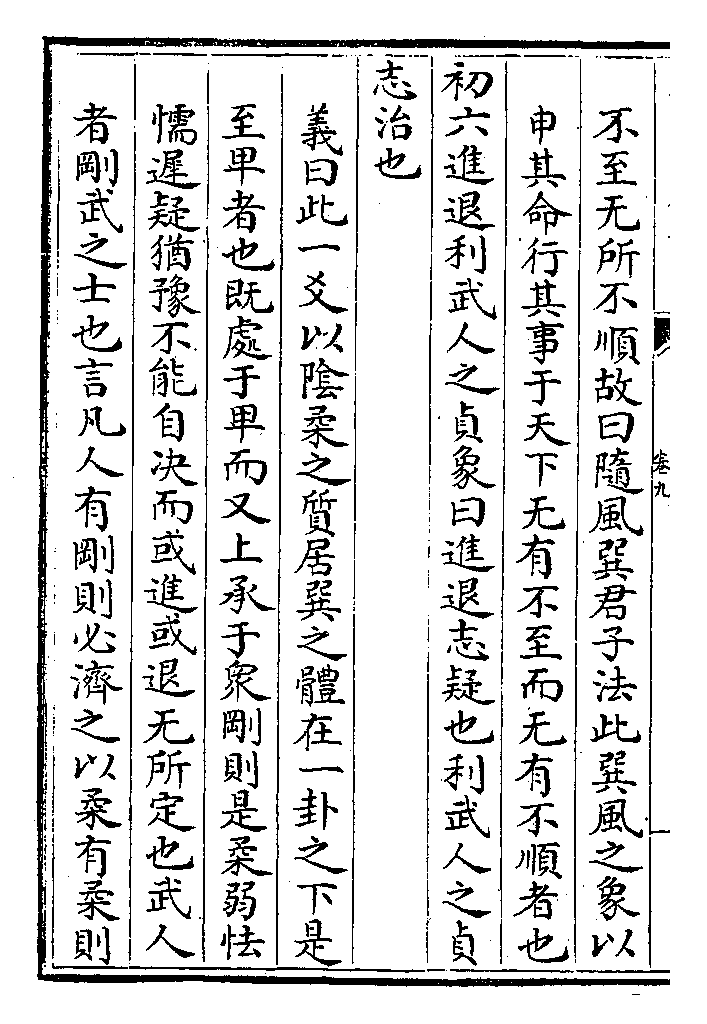 不至无所不順故曰隨風巽君子法此巽風之象以
申其命行其事于天下无有不至而无有不順者也
初六進退利武人之貞象曰進退志疑也利武人之貞
志治也
義曰此一爻以陰柔之質居巽之體在一卦之下是
至卑者也既處于卑而又上承于衆剛則是柔弱怯
懦遲疑猶豫不能自决而或進或退无所定也武人
者剛武之士也言凡人有剛則必濟之以柔有柔則
卷九
一